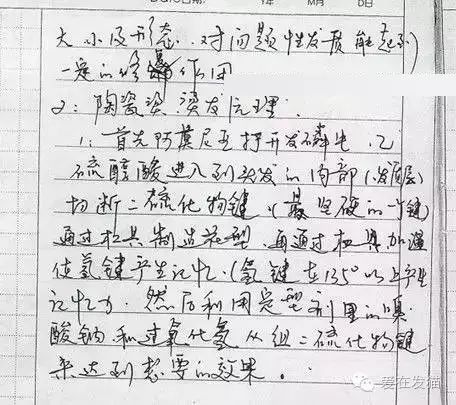 大小及形态.对问题性发质能起到
一定的修复作用
2: 陶瓷烫:烫发原理.
1: 首先阿莫尼亚打开发磷片,乙
硫醇酸进入到头发的内部(发质层)
切断二硫化物键,(最坚硬的一个键)
通过杠具制造花型.再通过杠具加温
使氢键产生记忆.(氢键在135°以上产生
记忆力.然后利用定型剂里的溴
酸钠和过氧化氢从组二硫化物键
来达到想要的效果.
爱在发猫